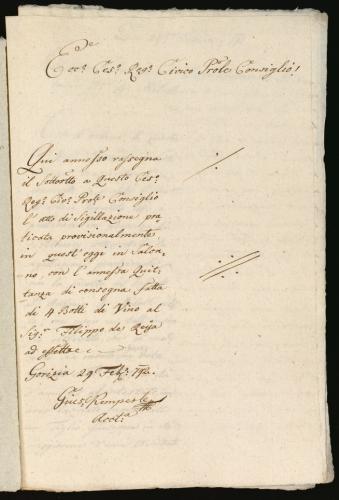 Ecc.o Ces.o Reg.o Civico Prote Consiglio!
Qui annesso rassegna
il Sottotto a Questo Ces.o
Reg.o Civ.o Prote Consiglio
l'atto di Sigillazione pra
ticata provisionalmente
in quest'oggi in Salca,
no, con l'annessa Quit,
tanza di consegna fatta
di 4 Botti di Vino al
Sig.r Filippo de
ad effetto
Gorizia 29 Feb.o
Gius. Kemperle